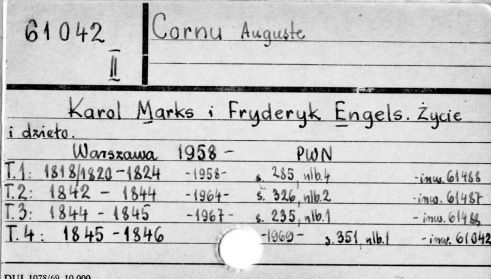 61042
II
Cornu Auguste
Karol Marks i Fryderyk Engels. Życie
i dzieło.
Warszawa 1958 - PWN
T.1: 1818/1820-1824 -1958- s. 285, nlb.4 -inw. 61488
T.2: 1842 - 1844 -1964- s. 326, nlb.2 -inw. 61487
T.3: 1844 - 1845 -1967- s. 235, nlb.1 -inw. 61488
T.4: 1845-1846 -1969- s. 351, nlb.1 -inw. 61042
DUJ 1078/69 10.000